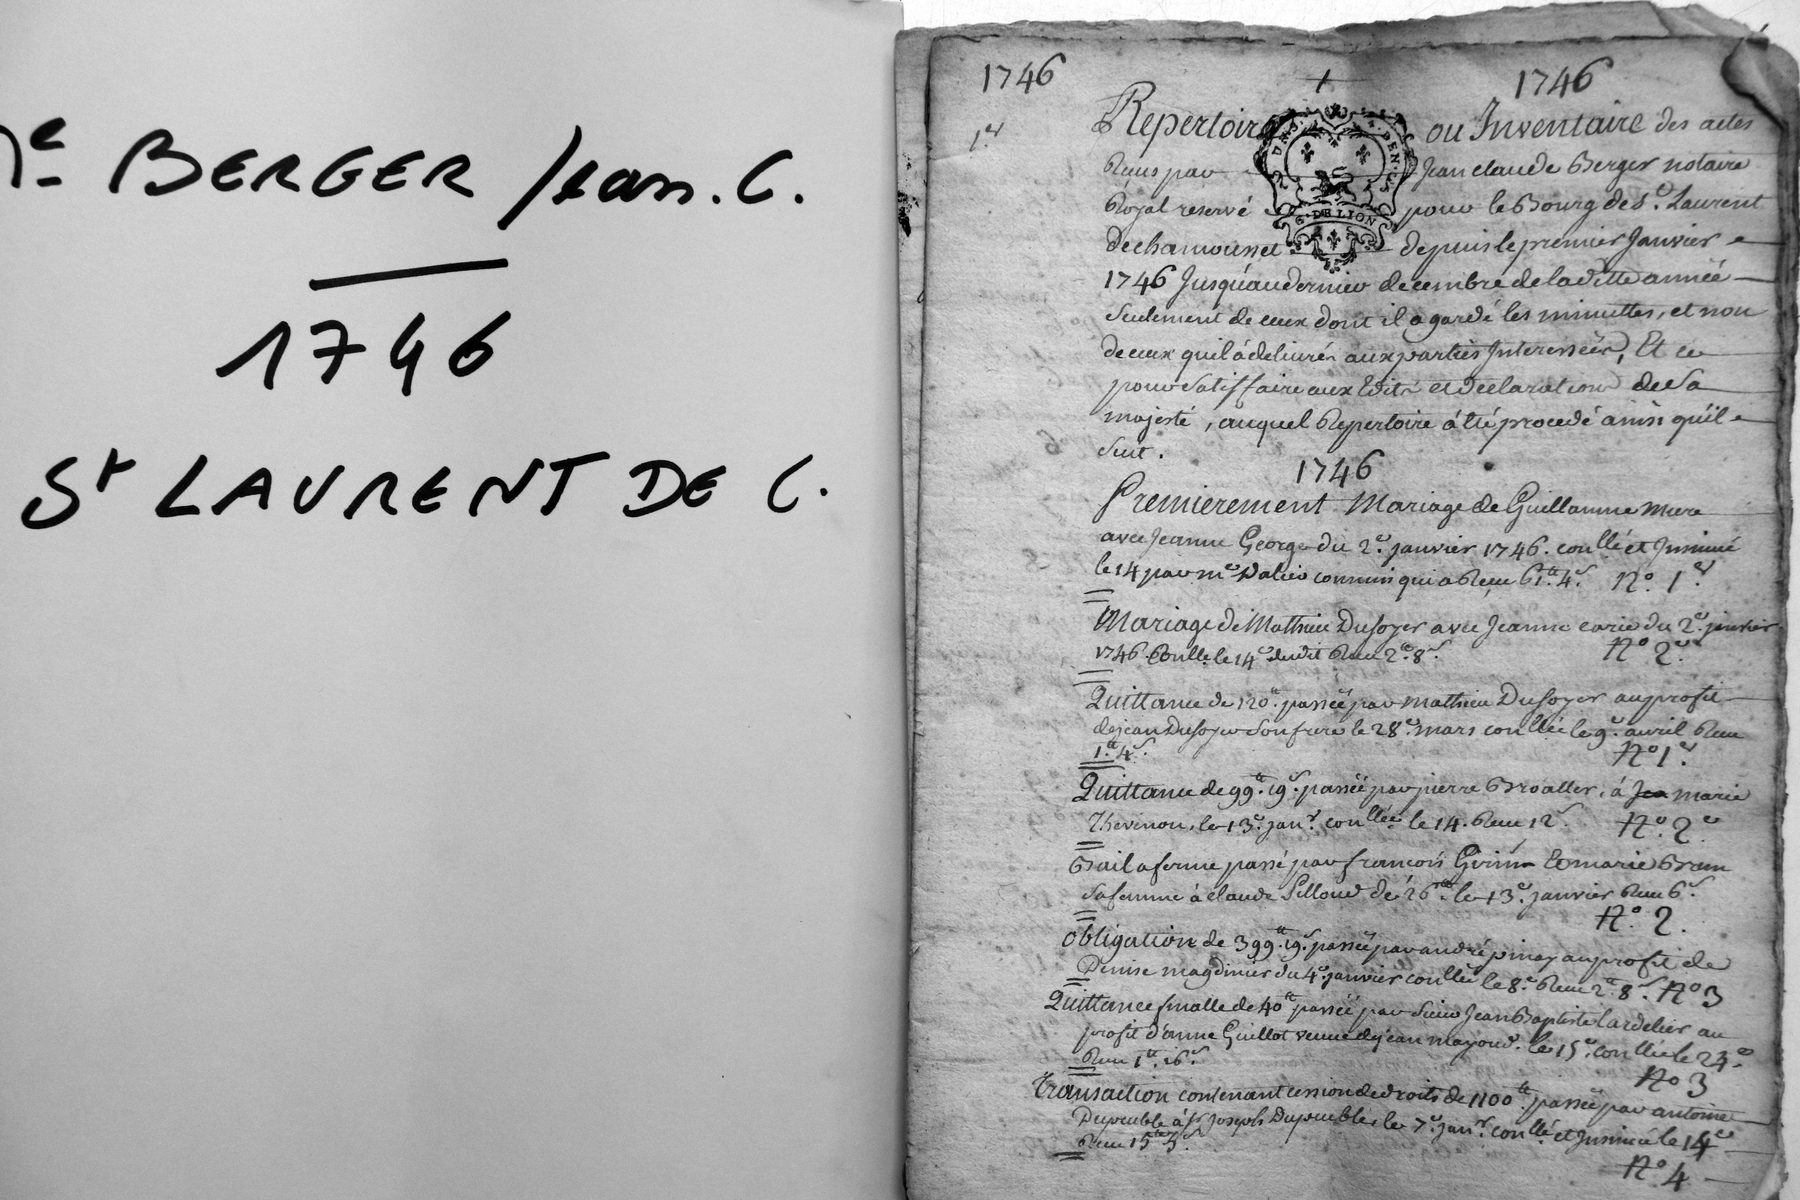 Me BERGER Jean. C.
1746
St LAURENT DE C.
1746 1 1746
1er
Repertoire ou Inventaire des actes
Reçus par Jean claude Berger notaire
Royal reservé pour le Bourg de St. Laurent
de chamousset depuis le premier Janvier
1746 Jusqu'au dernier decembre de laditte année
seulement de ceux dont il a gardé les minuttes, et non
de ceux quil à delivrés aux parties Interessées, Et ce
pour satisfaire aux Edits et declarations de sa
majesté, auquel Repertoire à été procedé ainsi qu'il
suit.
G. DE LION
1746
Premierement Mariage de Guillaume Mure
avec Jeanne George du 2e. janvier 1746. conllé et Insinué
le 14 par me Dalier commis qui a Reçu 61tt. 4s. No. 1er.
Mariage de Mathieu Dusoyer avec Jeanne carie du 2e. janvier
1746. Conllé. le 14e dudit Reçu 2tt. 8s. No 2e.
Quittance de 120tt. passée par mathieu Dusoyer au profit
de jean Dusoyer son frere le 28e. mars conllée le 9e. avril Reçu
1tt. 4s. No 1er.
Quittance de 99tt. 19s. passée par pierre Broallier, à Jea marie
Thevenon, le 13e. janr. conllée le 14. Reçu 12s. No. 2e
Bail a ferme passé par francois Et marie
sa femme à claude de 26tt. le 13e. janvier Reçu 6s.
No. 2.
Obligation de 399tt. 19s. passée par andré pinay au profit de
Denise magdinier du 4e. janvier conllée le 8e. Reçu 2tt. 8s. No 3
Quittance finalle de 40tt passée par Sieur Jean Baptiste Lardelier au
profit d'anne Guillot veuve de jean mayoud. le 15e. conllée le 24e.
Reçu 1tt. 16s.
No 3
Transaction contenant cession de droits de 1100tt. passée par antoine
Dupeuble à Sr Joseph Dupeuble, le 7e. janr. conllé et Insinué le 14e
Reçu 15tt 5s.
No 4